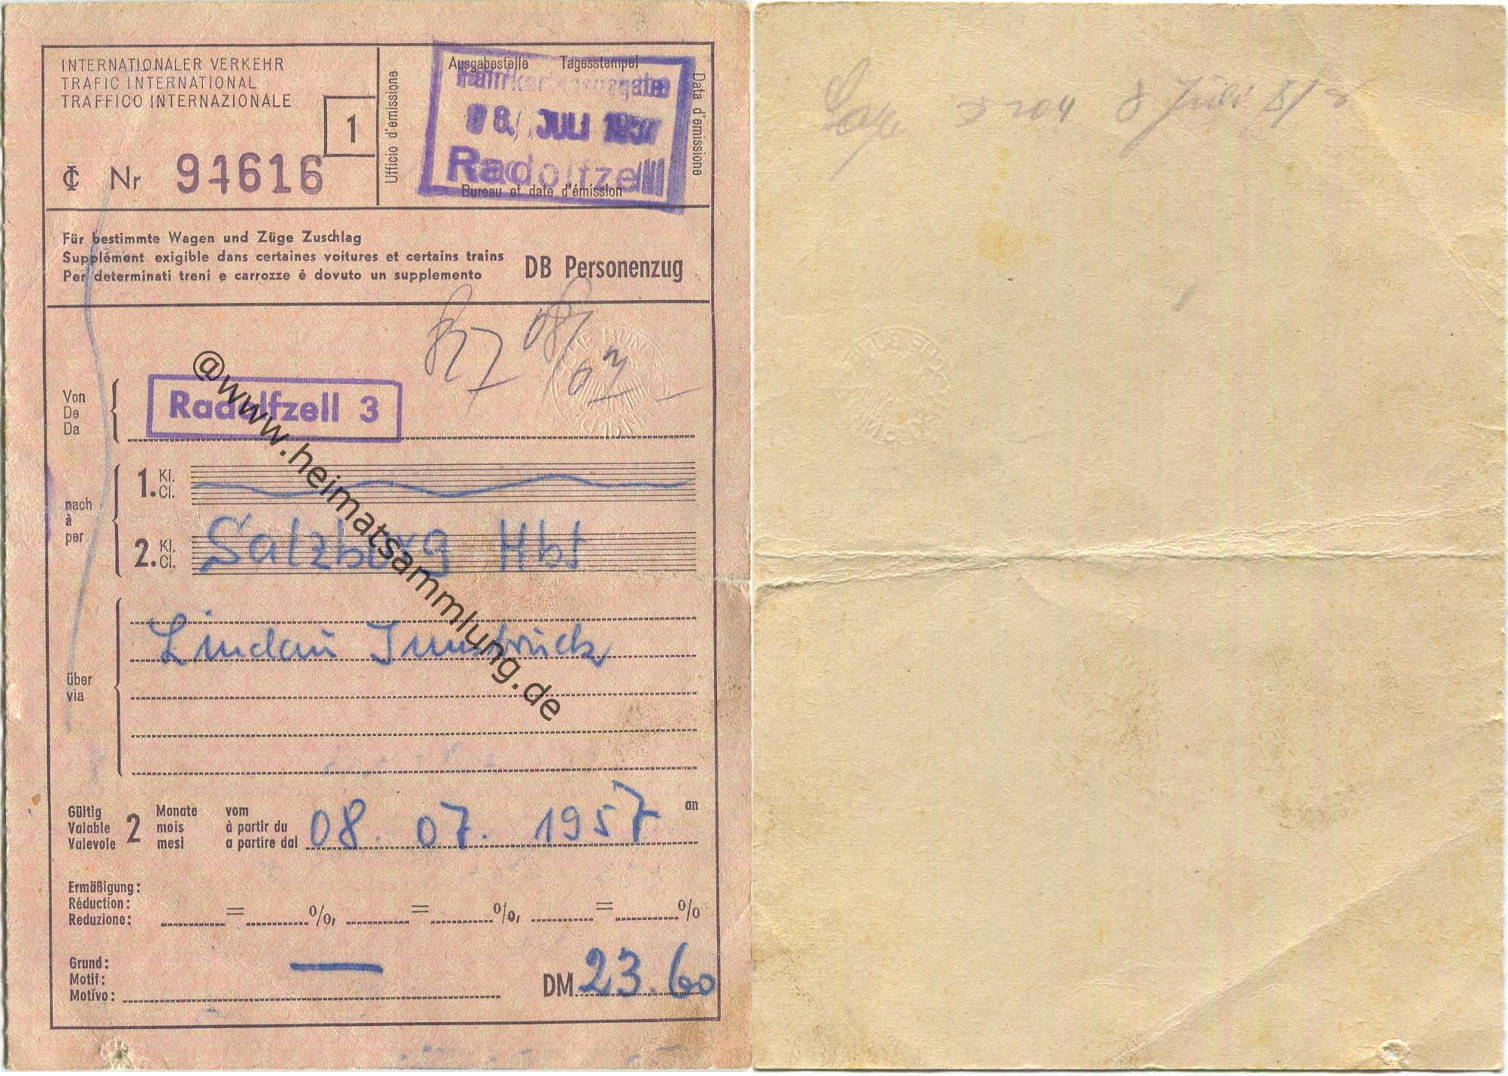 INTERNATIONALER VERKEHR
TRAFIC INTERNATIONAL
TRAFFICO INTERNAZIONALE
1
Nr 94616
Ufficio d'emissione
Ausgabestelle Tagesstempel
Fahrkartenausgabe
08. JULI 1957
Radolfzell
Bureau et date d'émission
Data d'emissione
Für bestimmte Wagen und Züge Zuschlag
Supplément exigible dans certaines voitures et certains trains
Per determinati treni e carrozze è dovuto un supplemento
DB Personenzug
Von
De
Da
Radolfzell 3
nach
à
per
1. Kl.
Cl.
2. Kl.
Cl.
Salzburg Hbf
über
via
Lindau Innsbruck
Gültig
Valable
Valevole
2
Monate
mois
mesi
vom
à partir du
a partire dal
08. 07. 1957
an
Ermäßigung:
Réduction:
Reduzione:
= %, = %, = %
Grund:
Motif:
Motivo:
DM 23.60
@www.heimatsammlung.de